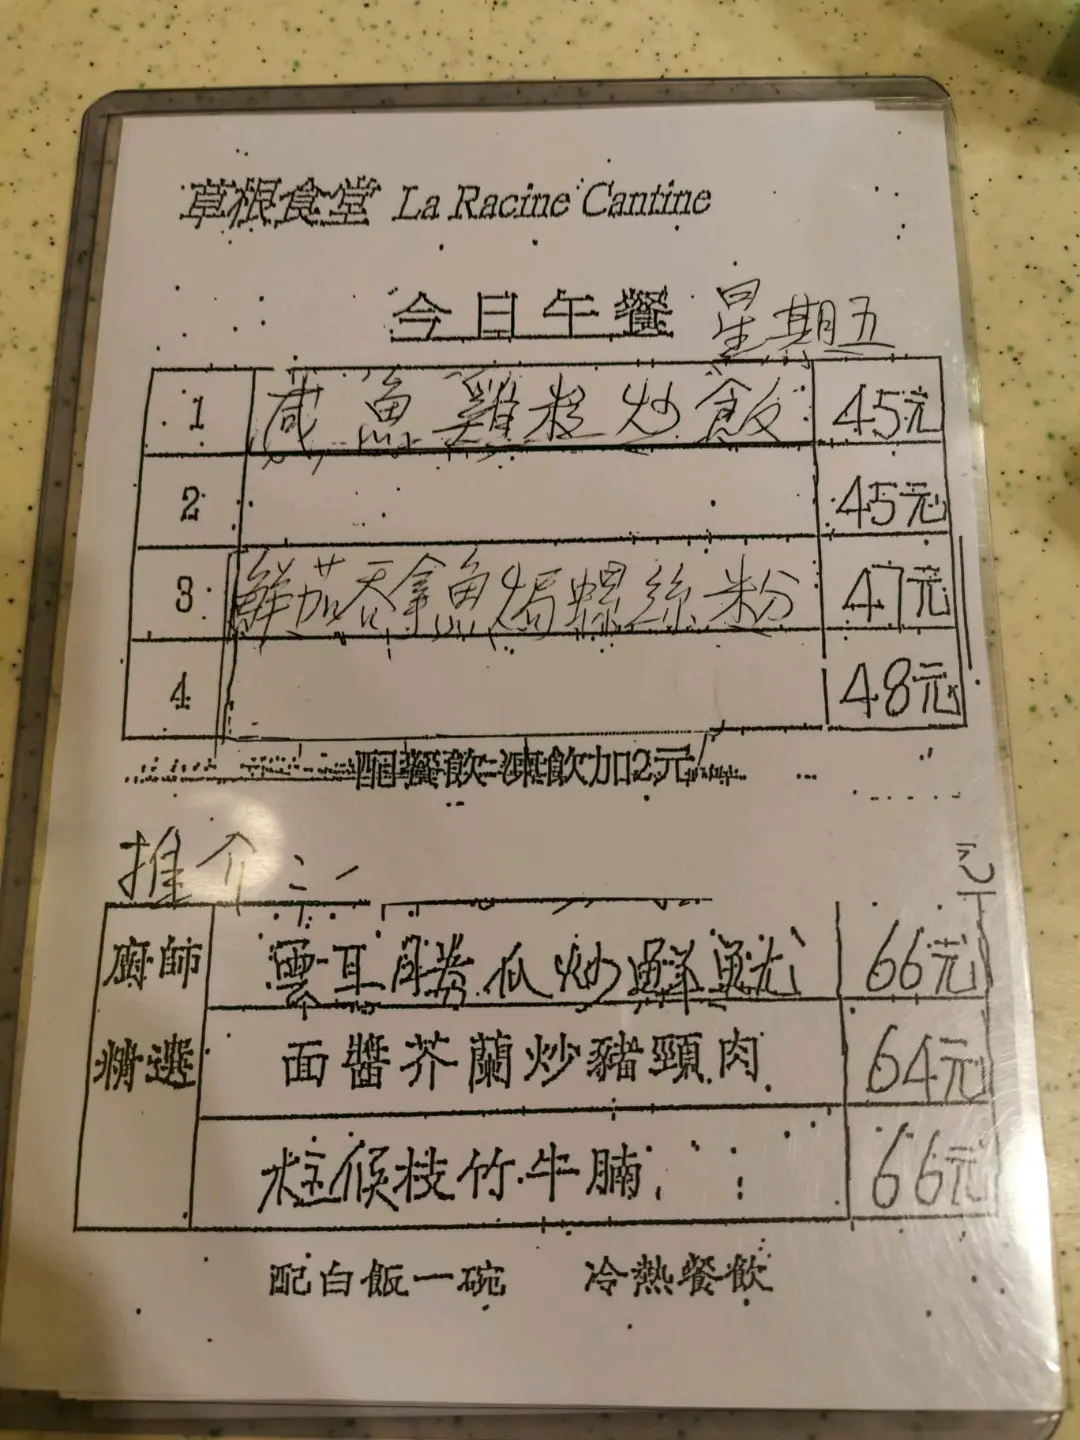 草根食堂 La Racine Cantine
今日午餐 星期五
1 咸魚雞粒炒飯 45元
2 45元
3 鮮茄吞拿魚焗螺絲粉 47元
4 48元
配餐飲-凍飲加2元
推介
廚師精選
雲耳勝瓜炒鮮魷 66元
面醬芥蘭炒豬頸肉 64元
柱候枝竹牛腩 66元
配白飯一碗 冷熱餐飲